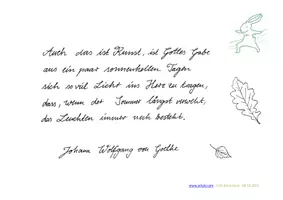 Auch das ist Kunst, ist Gottes Gabe
aus ein paar sonnenhellen Tagen
sich so viel Licht ins Herz zu tragen,
dass, wenn der Sommer längst verweht,
das Leuchten immer noch besteht.
Johann Wolfgang von Goethe